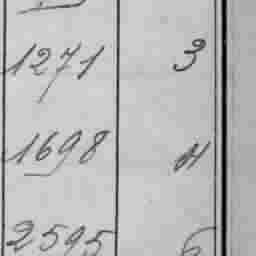 1271 3
1698 4
2595 6